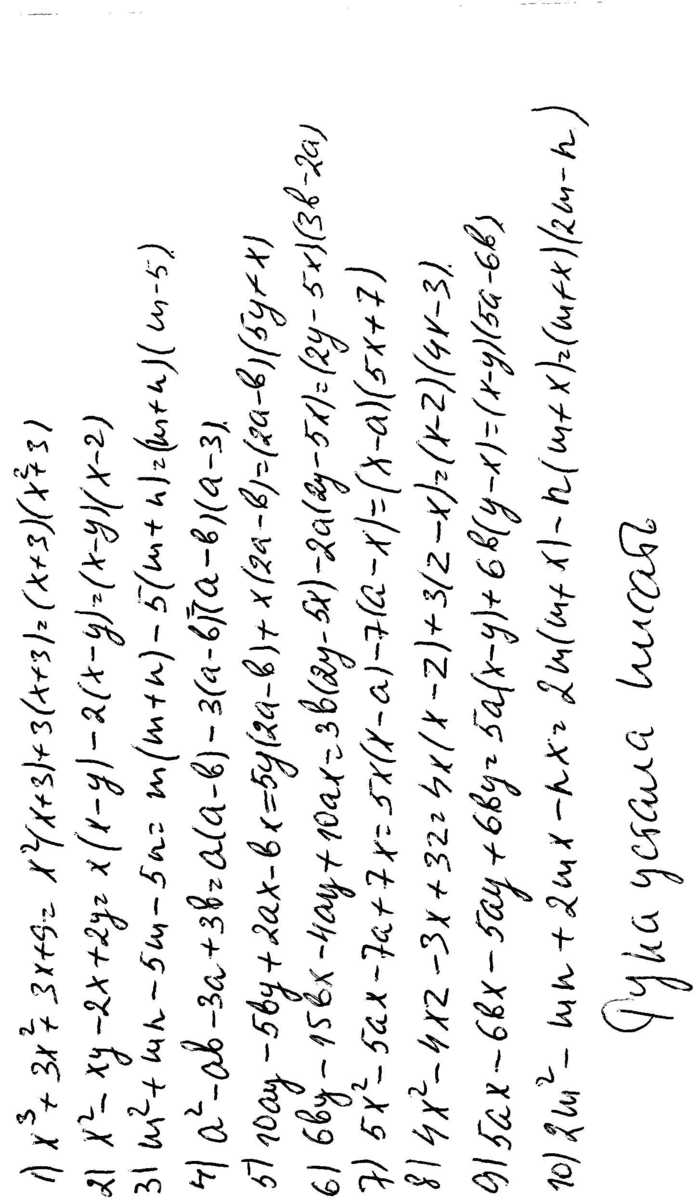 1) x³ + 3x² + 3x+9 = x²(x+3)+3(x+3)=(x+3)(x²+3)
2) x² - xy - 2x + 2y = x(x-y) - 2(x-y)=(x-y)(x-2)
3) m² + mn - 5m - 5n = m(m+n) - 5(m+n)=(m+n)(m-5)
4) a² - ab - 3a + 3b = a(a-b) - 3(a-b)=(a-b)(a-3)
5) 10ay - 5by + 2ax - bx = 5y(2a-b) + x(2a-b)=(2a-b)(5y+x)
6) 6by - 15bx - 4ay + 10ax = 3b(2y-5x) - 2a(2y-5x)=(2y-5x)(3b-2a)
7) 5x² - 5ax - 7a + 7x = 5x(x-a) - 7(a-x)=(x-a)(5x+7)
8) 4x² - 4xz - 3x + 3z = 4x(x-z) + 3(z-x)=(x-z)(4x-3)
9) 5ax - 6bx - 5ay + 6by = 5a(x-y) + 6b(y-x)=(x-y)(5a-6b)
10) 2m² - mn + 2mx - nx = 2m(m+x) - n(m+x)=(m+x)(2m-n)
Рука устала писать